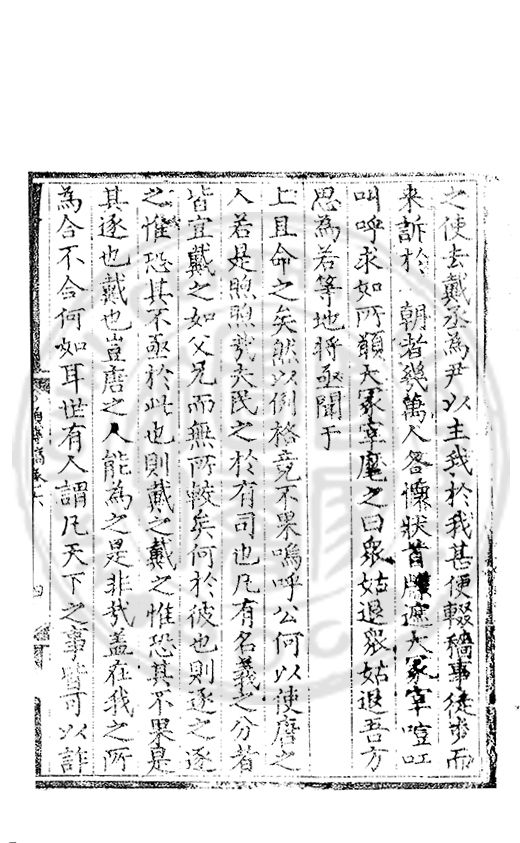 之使去戴丞為尹以主我於我甚便輟穡事徒步而
來訴於　朝者幾萬人各懷狀首　遮大冢宰喧吅
叫呼求如所願大冢宰麾之曰眾姑退眾姑退吾方
思為若等地將亟聞于
上且命之矣然以例格竟不果嗚呼公何以使唐之
人若是煦煦哉夫民之於有司也凡有名義之分者
皆宜戴之如父兄而無所較矣何於彼也則逐之逐
之惟恐其不亟於此也則戴之戴之惟恐其不果是
其逐也戴也豈唐之人能為之是非哉盖在我之所
為合不合何如耳世有人謂凡天下之事皆可以詐